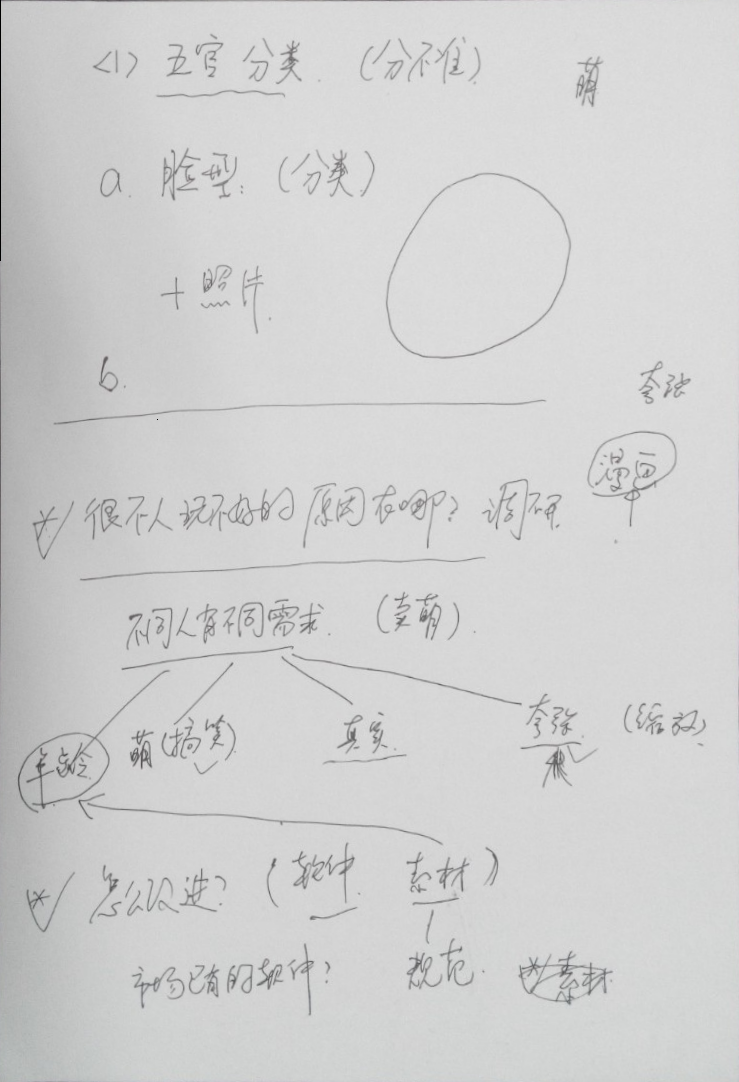 <1> 五官分类.（分不准）
萌
a. 脸型:（分类）
+ 照片.
b.
夸张
漫画
很不人玩不好的原因在哪? 调研
不同人有不同需求.（卖萌）.
年龄 萌(搞笑) 真实 夸张.（缩放）
怎么改进?（软件. 素材）
市场已有的软件? 规范.
素材